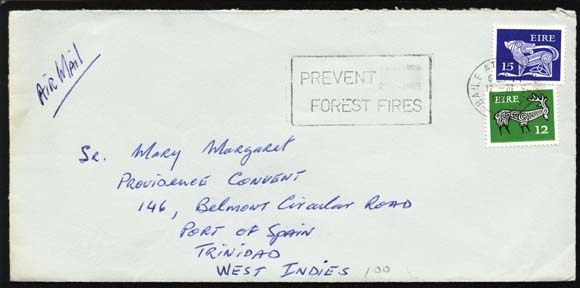 Air Mail
PREVENT
FOREST FIRES
EIRE
15
BAILE ÁT
EIRE
12
Sr. Mary Margaret
Providence Convent
146, Belmont Circular Road
Port of Spain
Trinidad
West Indies
100